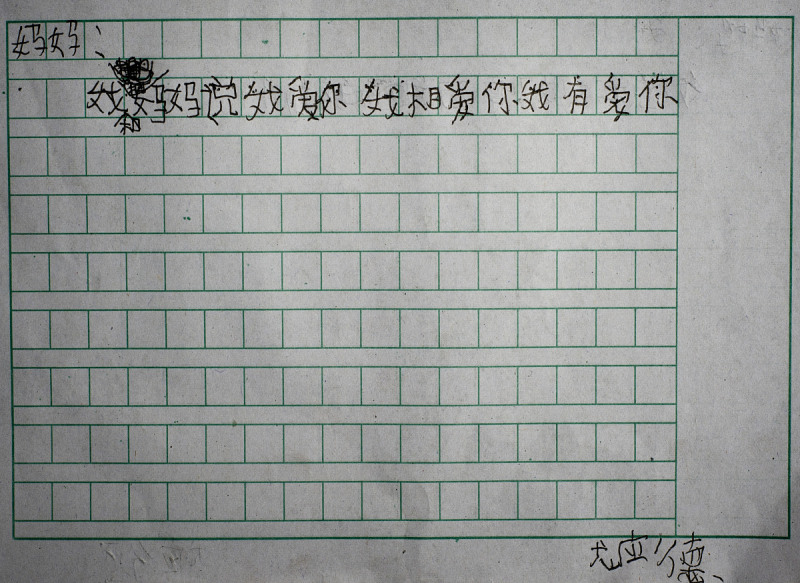 妈妈：
我和妈妈说我爱你 我相爱你我有爱你
德